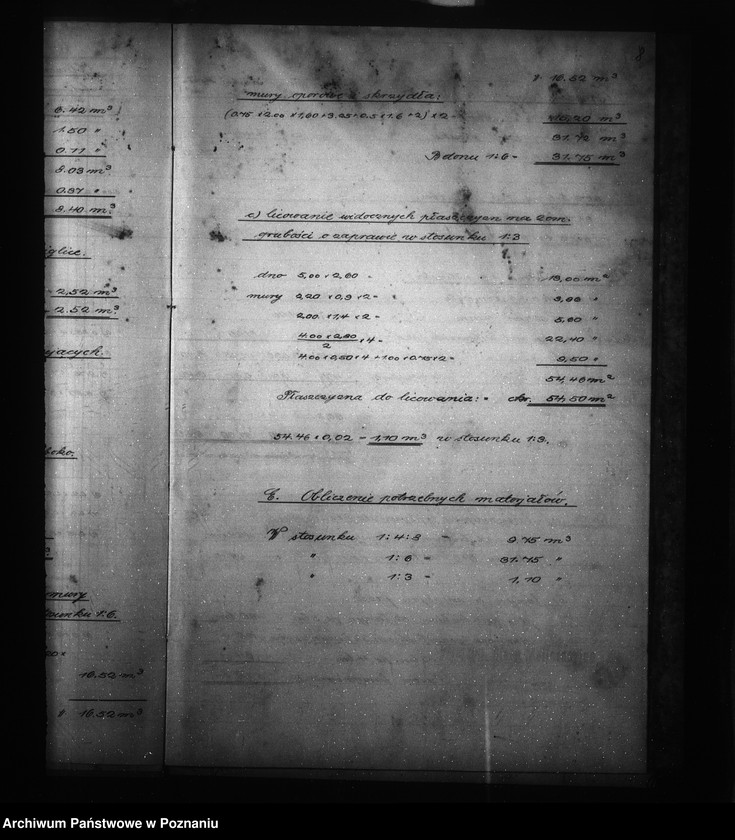 6.42 m³
1.50 "
0.77 "
8.03 m³
0.37 "
8.40 m³
2,52 m³
2.52 m³
jących.
mury
sunku 1:6.
16.52 m³
16.52 m³
8
16.52 m³
mury oporowe i skrzydła:
31.72 m³
Betonu 1:6 = 31.75 m³
c) licowanie widocznych płaszczyzn na 2cm.
grubości o zaprawie w stosunku 1:3
dno 5,00 × 2,60 = 13,00 m²
mury 2,20 × 0,9 × 2 =
2.00 × 1,4 × 2 = 5,60 "
4.00 × 2,80 / 2 × 4 = 22,40 "
9,50 "
54,46 m²
Płaszczyzna do licowania: = 54,50 m²
54.46 × 0,02 = 1,10 m³ w stosunku 1:3.
Obliczenie potrzebnych materjałów.
W stosunku 1:4:8 = 9.75 m³
" 1:6 = 31.75 "
" 1:3 = 1,10 "
Archiwum Państwowe w Poznaniu